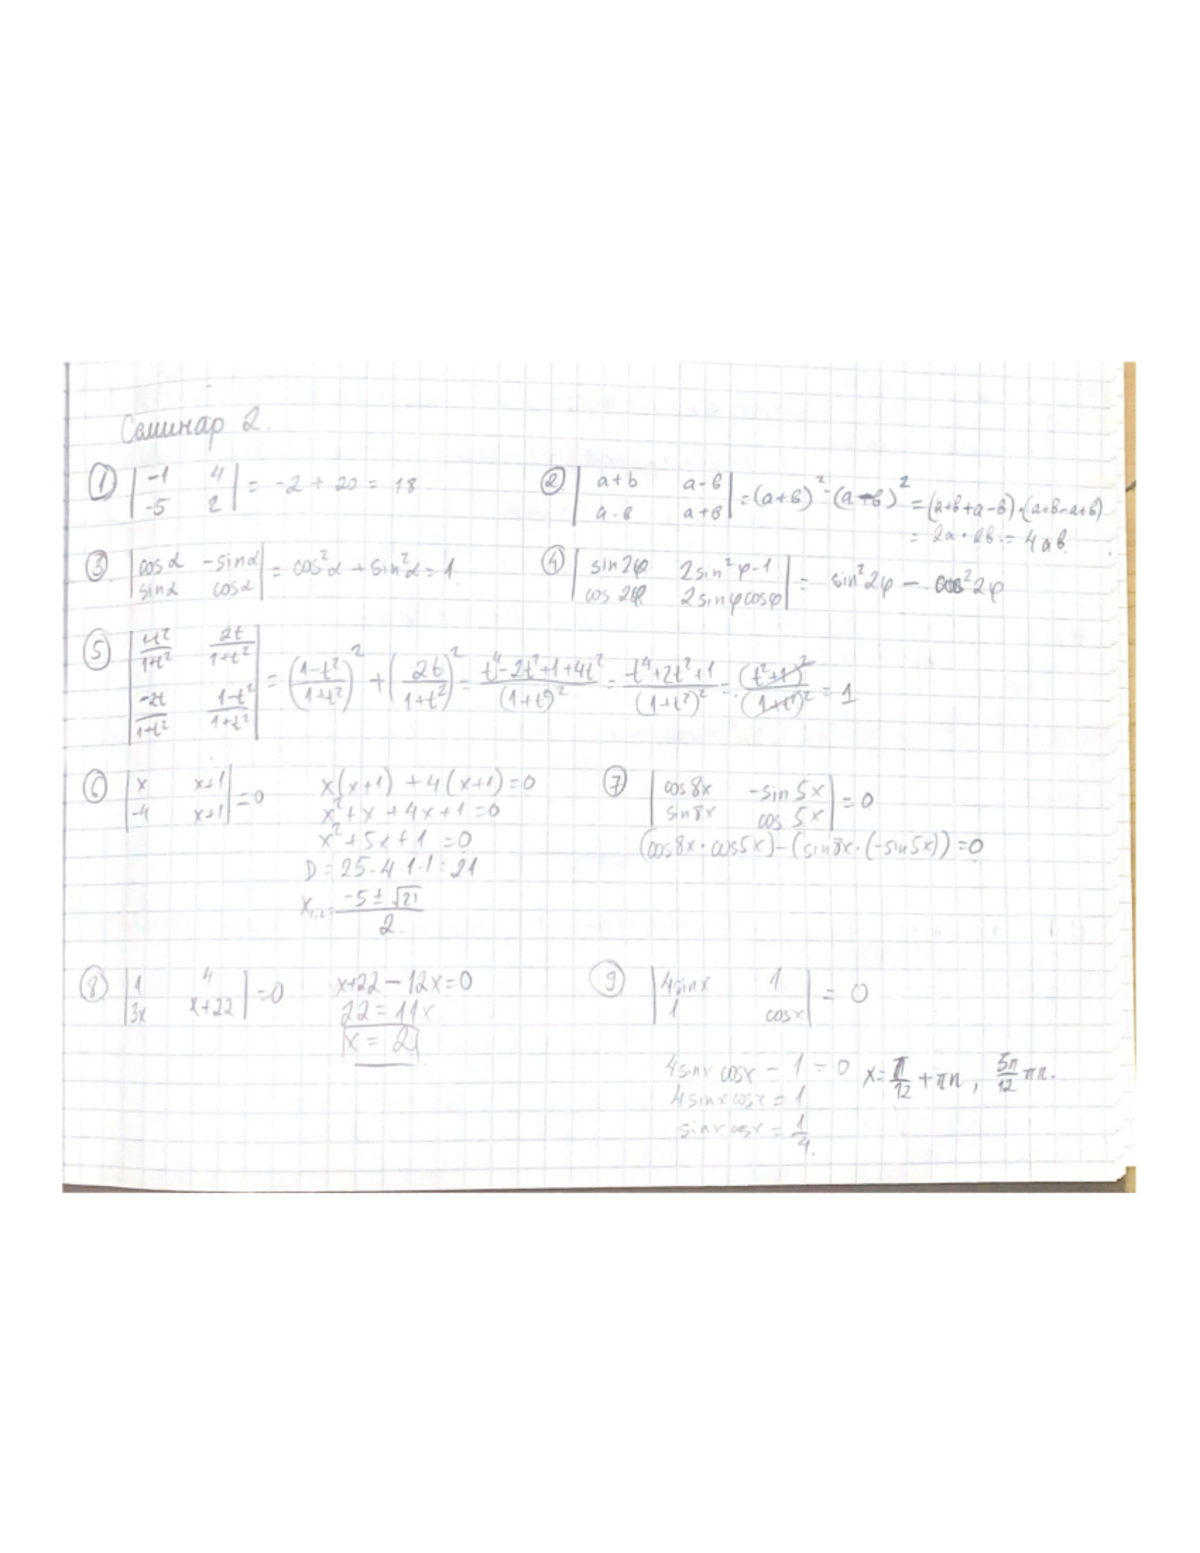 Семинар 2.
① |-1 4; -5 2| = -2 + 20 = 18
② |a+b a-b; a-b a+b| = (a+b)² - (a-b)² = (a+b+a-b)·(a+b-a+b)
= 2a·2b = 4ab
③ |cosα -sinα; sinα cosα| = cos²α + sin²α = 1
④ |sin2φ 2sin²φ-1; cos2φ 2sinφcosφ| = sin²2φ - cos²2φ
⑤ |1-t²/1+t² 2t/1+t²; -2t/1+t² 1-t²/1+t²| = (1-t²/1+t²)² + (2t/1+t²)² = t⁴-2t²+1+4t²/(1+t²)² = t⁴+2t²+1/(1+t²)² = (t²+1)²/(1+t²)² = 1
⑥ |x x+1; -4 x+1| = 0
x(x+1) + 4(x+1) = 0
x²+x+4x+1=0
x²+5x+1=0
D=25-4·1·1=21
x₁,₂ = -5±√21/2
⑦ |cos8x -sin5x; sin8x cos5x| = 0
(cos8x·cos5x)-(sin8x·(-sin5x))=0
⑧ |1 4; 3x x+22| = 0
x+22-12x=0
22=11x
x=2
⑨ |4sinx 1; 1 cosx| = 0
4sinxcosx - 1 = 0 x=π/12+πn, 5π/12 πn.
4sinxcosx = 1
sinxcosx = 1/4.